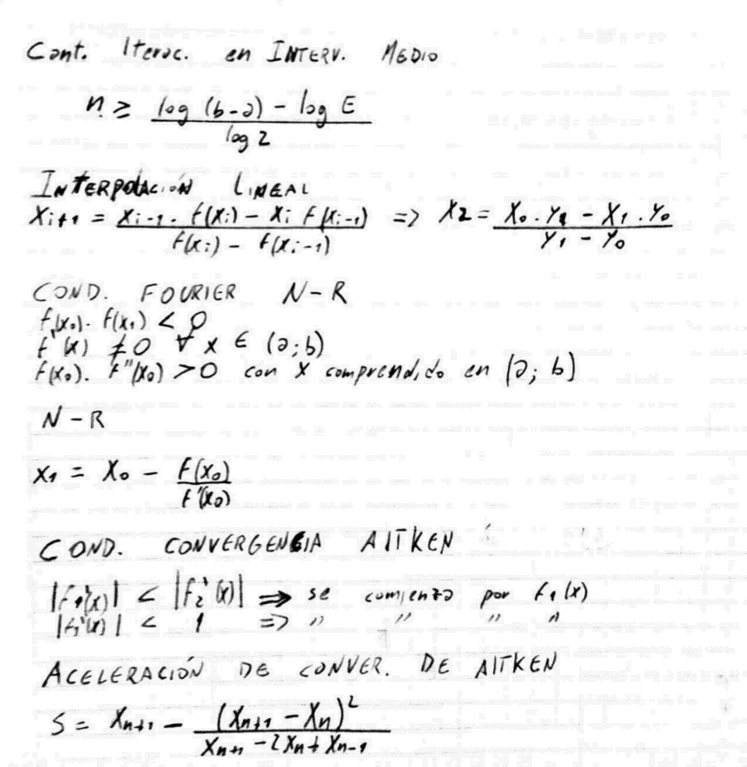 Cant. Iterac. en INTERV. MEDIO
n ≥ (log (b-a) - log E) / log 2
INTERPOLACIÓN LINEAL
Xi+1 = (Xi-1 . f(xi) - Xi f(xi-1)) / (f(xi) - f(xi-1)) => X2 = (X0 . Y1 - X1 . Y0) / (Y1 - Y0)
COND. FOURIER N-R
f(x0). f(x1) < 0
f'(x) ≠ 0 ∀ x ∈ (a; b)
f(x0). f''(x0) > 0 con x comprendido en [a; b]
N-R
X1 = X0 - f(x0) / f'(x0)
COND. CONVERGENCIA AITKEN
|f1'(x)| < |f2'(x)| => se comienza por f1(x)
|f1'(x)| < 1 => " " " "
ACELERACIÓN DE CONVER. DE AITKEN
S = Xn+1 - (Xn+1 - Xn)² / (Xn+1 - 2Xn + Xn-1)